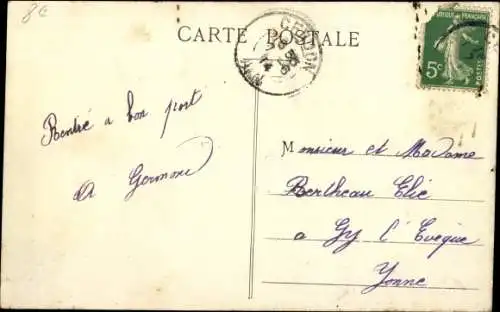 8€
CARTE POSTALE
RÉPUBLIQUE FRANÇAISE
5c
POSTES
Rentré a bon port
A Germond
Monsieur et Madame
Bertheau Elie
a Gy l'Eveque
Yonne